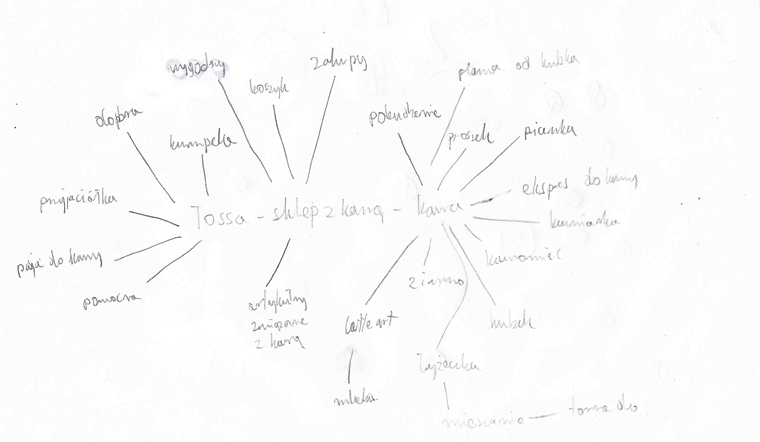 wygodny
zakupy
plama od kubka
koszyk
dobra
pobudzenie
kumpela
proszek
piesenka
ekspres do kawy
przyjaciółka
Tossa - sklep z kawą - kawa
kawiarka
psiapsi do kawy
kawomieć
ziarno
pomocna
artykuły
związane
z kawą
latte art
kubek
łyżeczka
mleko
mieszanie